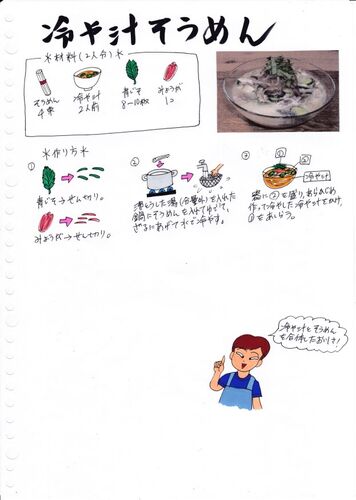 冷や汁そうめん
※材料(2人分)※
そうめん
4束
冷や汁
2人前
青じそ
8〜10枚
みょうが
1コ
※作り方※
①
青じそ→せん切り。
みょうが→せん切り。
②
沸とうした湯(分量外)を入れた
鍋にそうめんを入れてゆでて、
ざるにあげて水で冷やす。
③
①
②
冷や汁
器に②を盛り、あらかじめ
作って冷やした冷や汁をかけ、
①をあしらう。
冷や汁と そうめん
を合体したおいしさ!